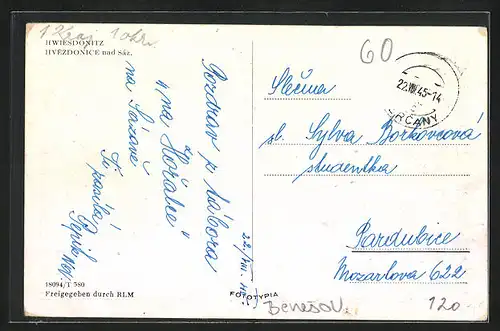 1 Kčs, 1 okr.
HWIESDONITZ
HVĚZDONICE nad Sáz.
Pozdrav z tábora
"na Hořalce"
na Sázavě
Ti posílá
Pepík
22./VIII.
18094/T 580
Freigegeben durch RLM
FOTOTYPIA
Benešov.
60
22.VIII.45-14
ČRČANY
Slečna
sl. Sylva Borkovcová
studentka
Pardubice
Mozartova 622
120.